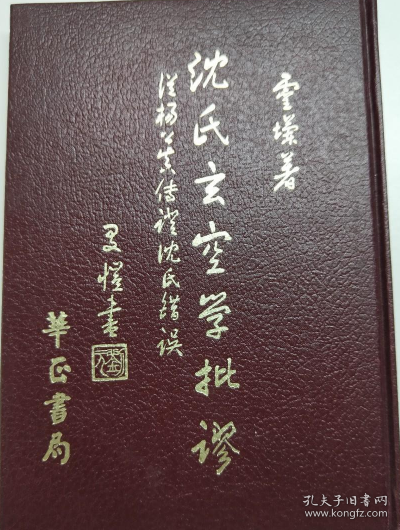 雲著
沈氏玄空学批謬
從楊公真傳證沈氏錯誤
愷書
華正書局
孔夫子旧书网
www.kongfz.com